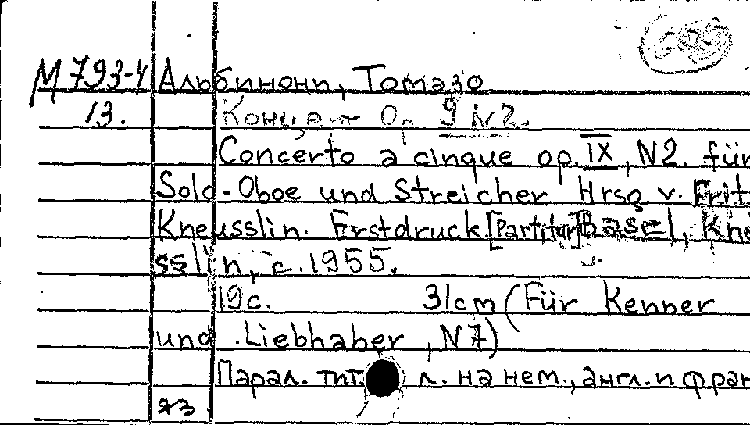 М793-4 Альбинони, Томазо
13. Концерт Op. 9 N2.
Concerto a cinque op. IX, N2. für
Solo-Oboe und Streicher Hrsg v. Frit
Kneusslin. Erstdruck. [Partitur] Basel, Kne
sslin, c. 1955.
19c. 31cm (Für Kenner
und Liebhaber, N7)
Парал. тит. л. на нем., англ. и фран